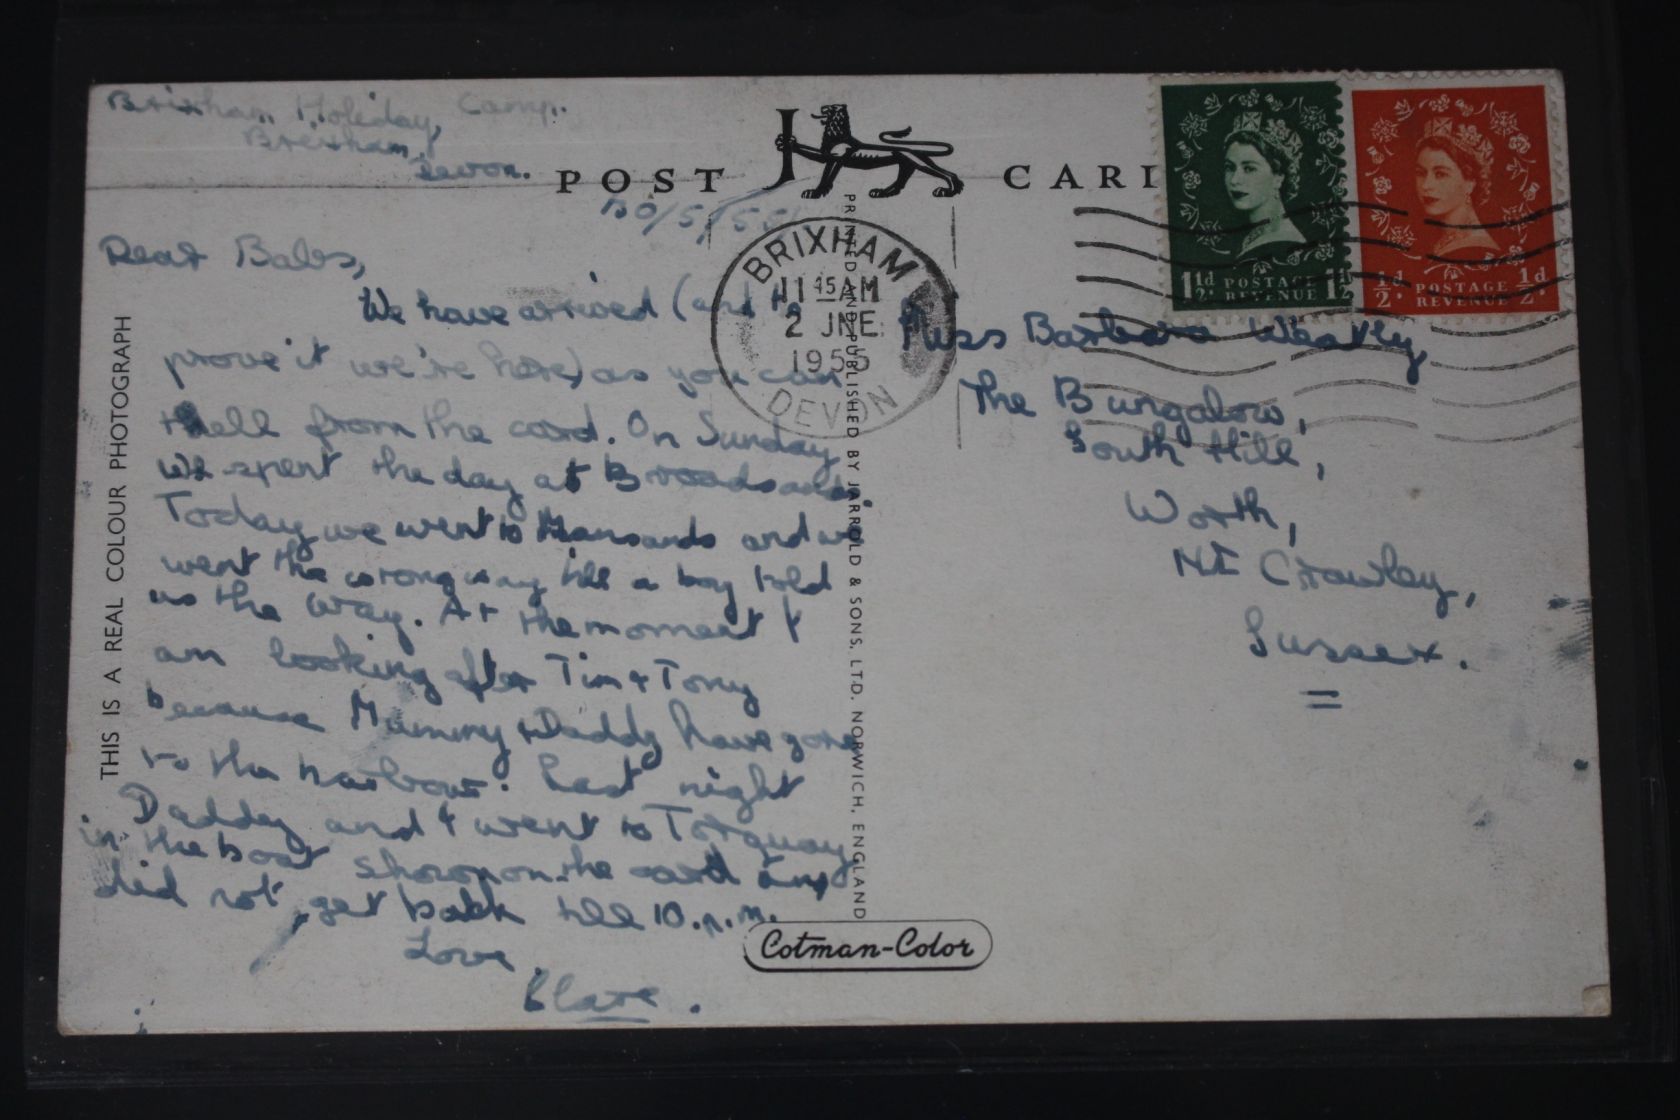 Brixham Holiday Camp.
Brixham,
Devon.
POST CARD
30/5/55
Dear Babs,
We have arrived (and to
prove it we're here) as you can
tell from the card. On Sunday
we spent the day at Broadsands.
Today we went to Mansands and we
went the wrong way till a boy told
us the way. At the moment I
am looking after Tim & Tony
because Mummy & Daddy have gone
to the harbour. Last night
Daddy and I went to Torquay
in the boat shown on the card any
did not get back till 10.p.m.
Love
Clare.
THIS IS A REAL COLOUR PHOTOGRAPH
PRINTED AND PUBLISHED BY JARROLD & SONS, LTD. NORWICH, ENGLAND
Cotman-Color
BRIXHAM
11 45 AM
2 JNE
1955
DEVON
1½d POSTAGE REVENUE 1½
½d. POSTAGE REVENUE ½d.
Miss Barbara
The Bungalow,
South Hill,
Worth,
Nr Crawley,
Sussex.